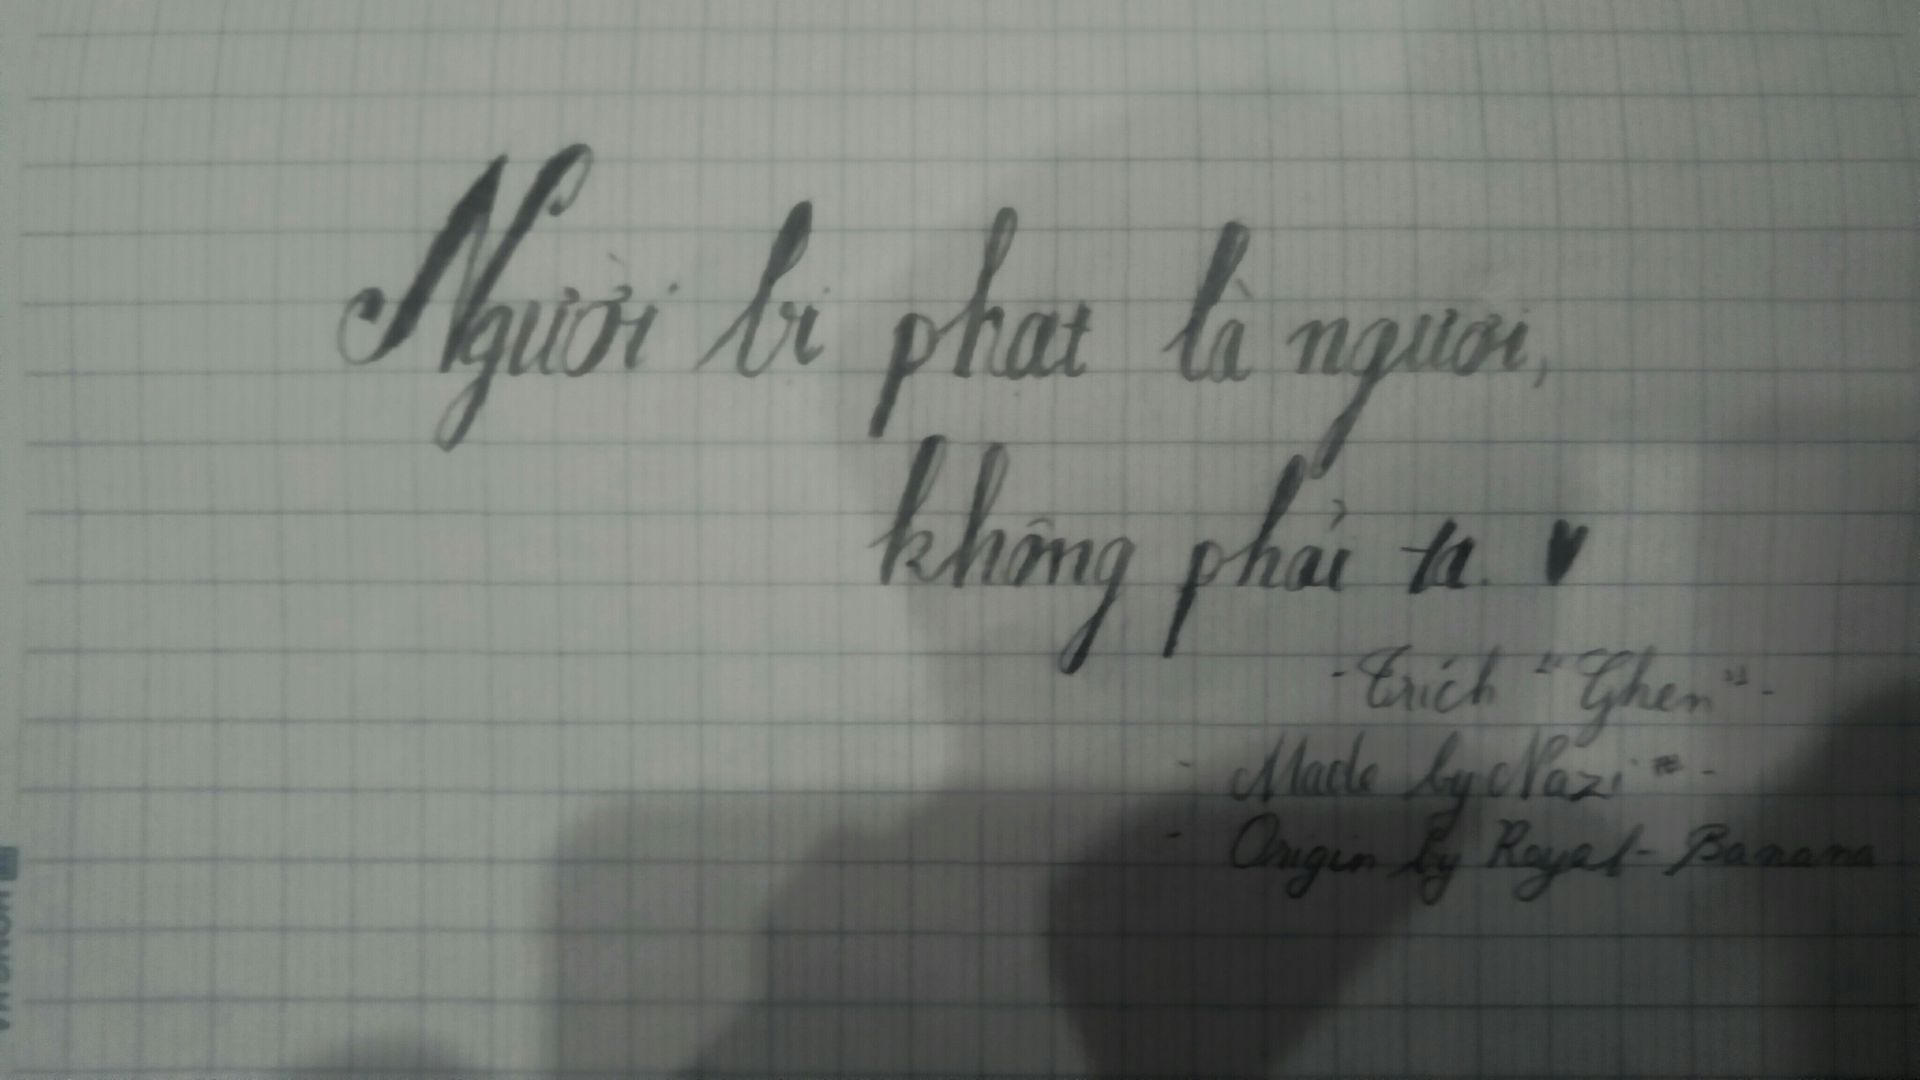 Người bị phat là ngươi,
không phải ta. ♥
- Trích "Ghen" -
- Made by Nazi -
- Origin by Royal - Banana